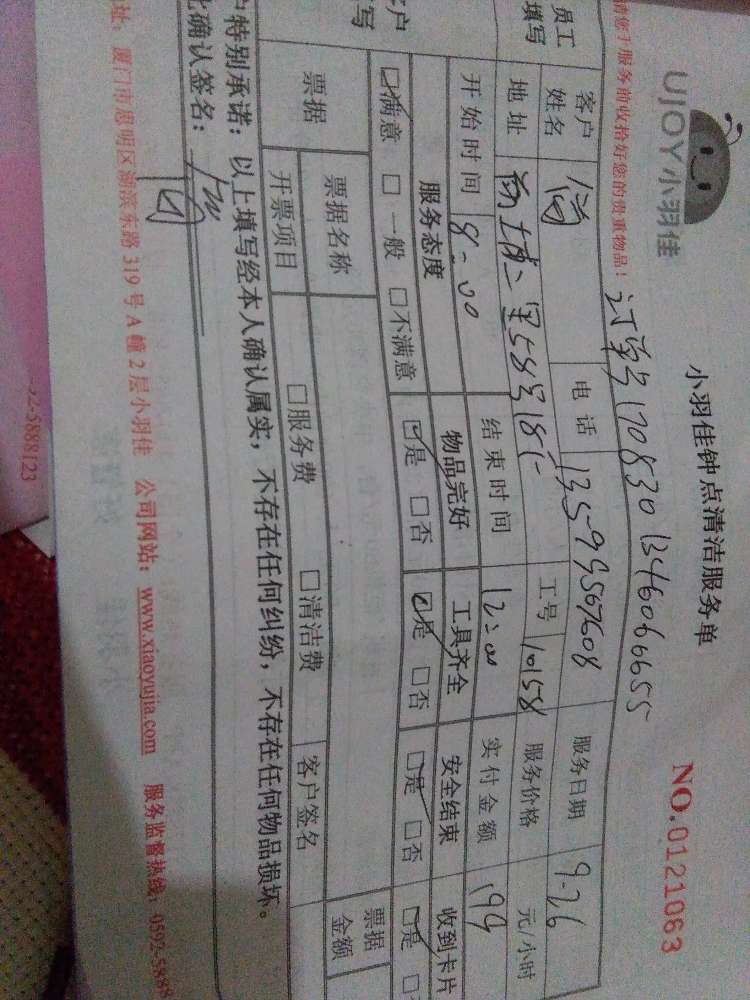 UJOY小羽佳
小羽佳钟点清洁服务单
NO.0121063
请您于服务前收拾好您的贵重物品！
订单号1708301346066655
员工填写
客户姓名
电话 13599507608
服务日期 9-26
地址
里58号181
工号 10158
服务价格 元/小时
开始时间 8-00
结束时间 12:00
实付金额 199
客户
写
服务态度 物品完好 工具齐全 安全结束 收到卡片
☑满意 □一般 □不满意 ☑是 □否 ☑是 □否 ☑是 □否 ☑是
票据
票据名称
□服务费 □清洁费
客户签名
票据金额
开票项目
户特别承诺：以上填写经本人确认属实，不存在任何纠纷，不存在任何物品损坏。
此确认签名：
址：厦门市思明区湖滨东路319号A幢2层小羽佳 公司网站：www.xiaoyujia.com 服务监督热线：0592-5888
-92-5888123